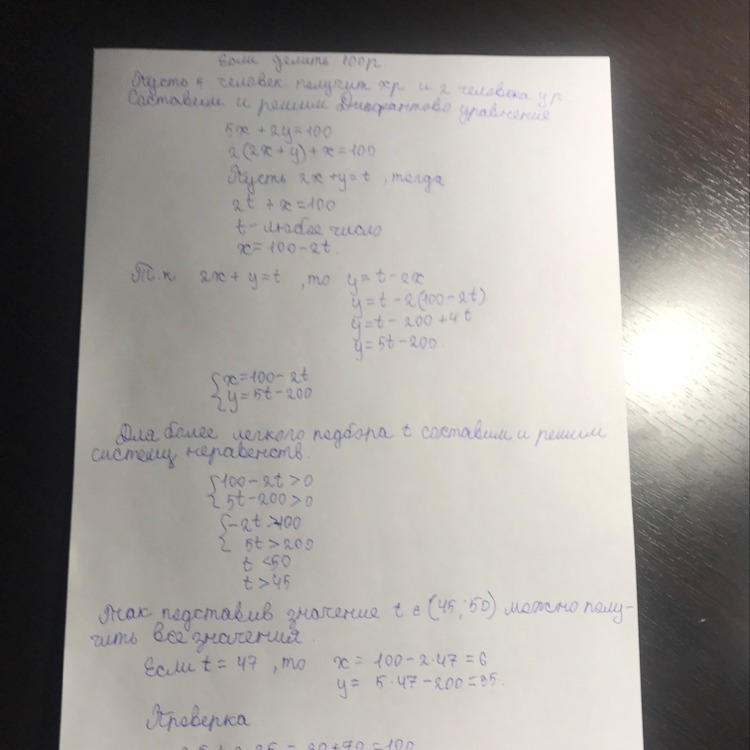 Если делить 100р.
Пусть 5 человек получит xр и 2 человека yр
Составим и решим Диофантово уравнения
5x + 2y = 100
2(2x + y) + x = 100
Пусть 2x + y = t, тогда
2t + x = 100
t - любое число
x = 100 - 2t.
Т.к 2x + y = t, то y = t - 2x
y = t - 2(100 - 2t)
y = t - 200 + 4t
y = 5t - 200
{x = 100 - 2t
{y = 5t - 200
Для более легкого подбора t составим и решим
систему неравенств.
{100 - 2t > 0
{5t - 200 > 0
{-2t > 100
{5t > 200
t < 50
t > 45
Так подставив значение t ∈ (45; 50) можно полу-
чить все значения.
Если t = 47, то x = 100 - 2·47 = 6
y = 5·47 - 200 = 35.
Проверка
= 30 + 70 = 100